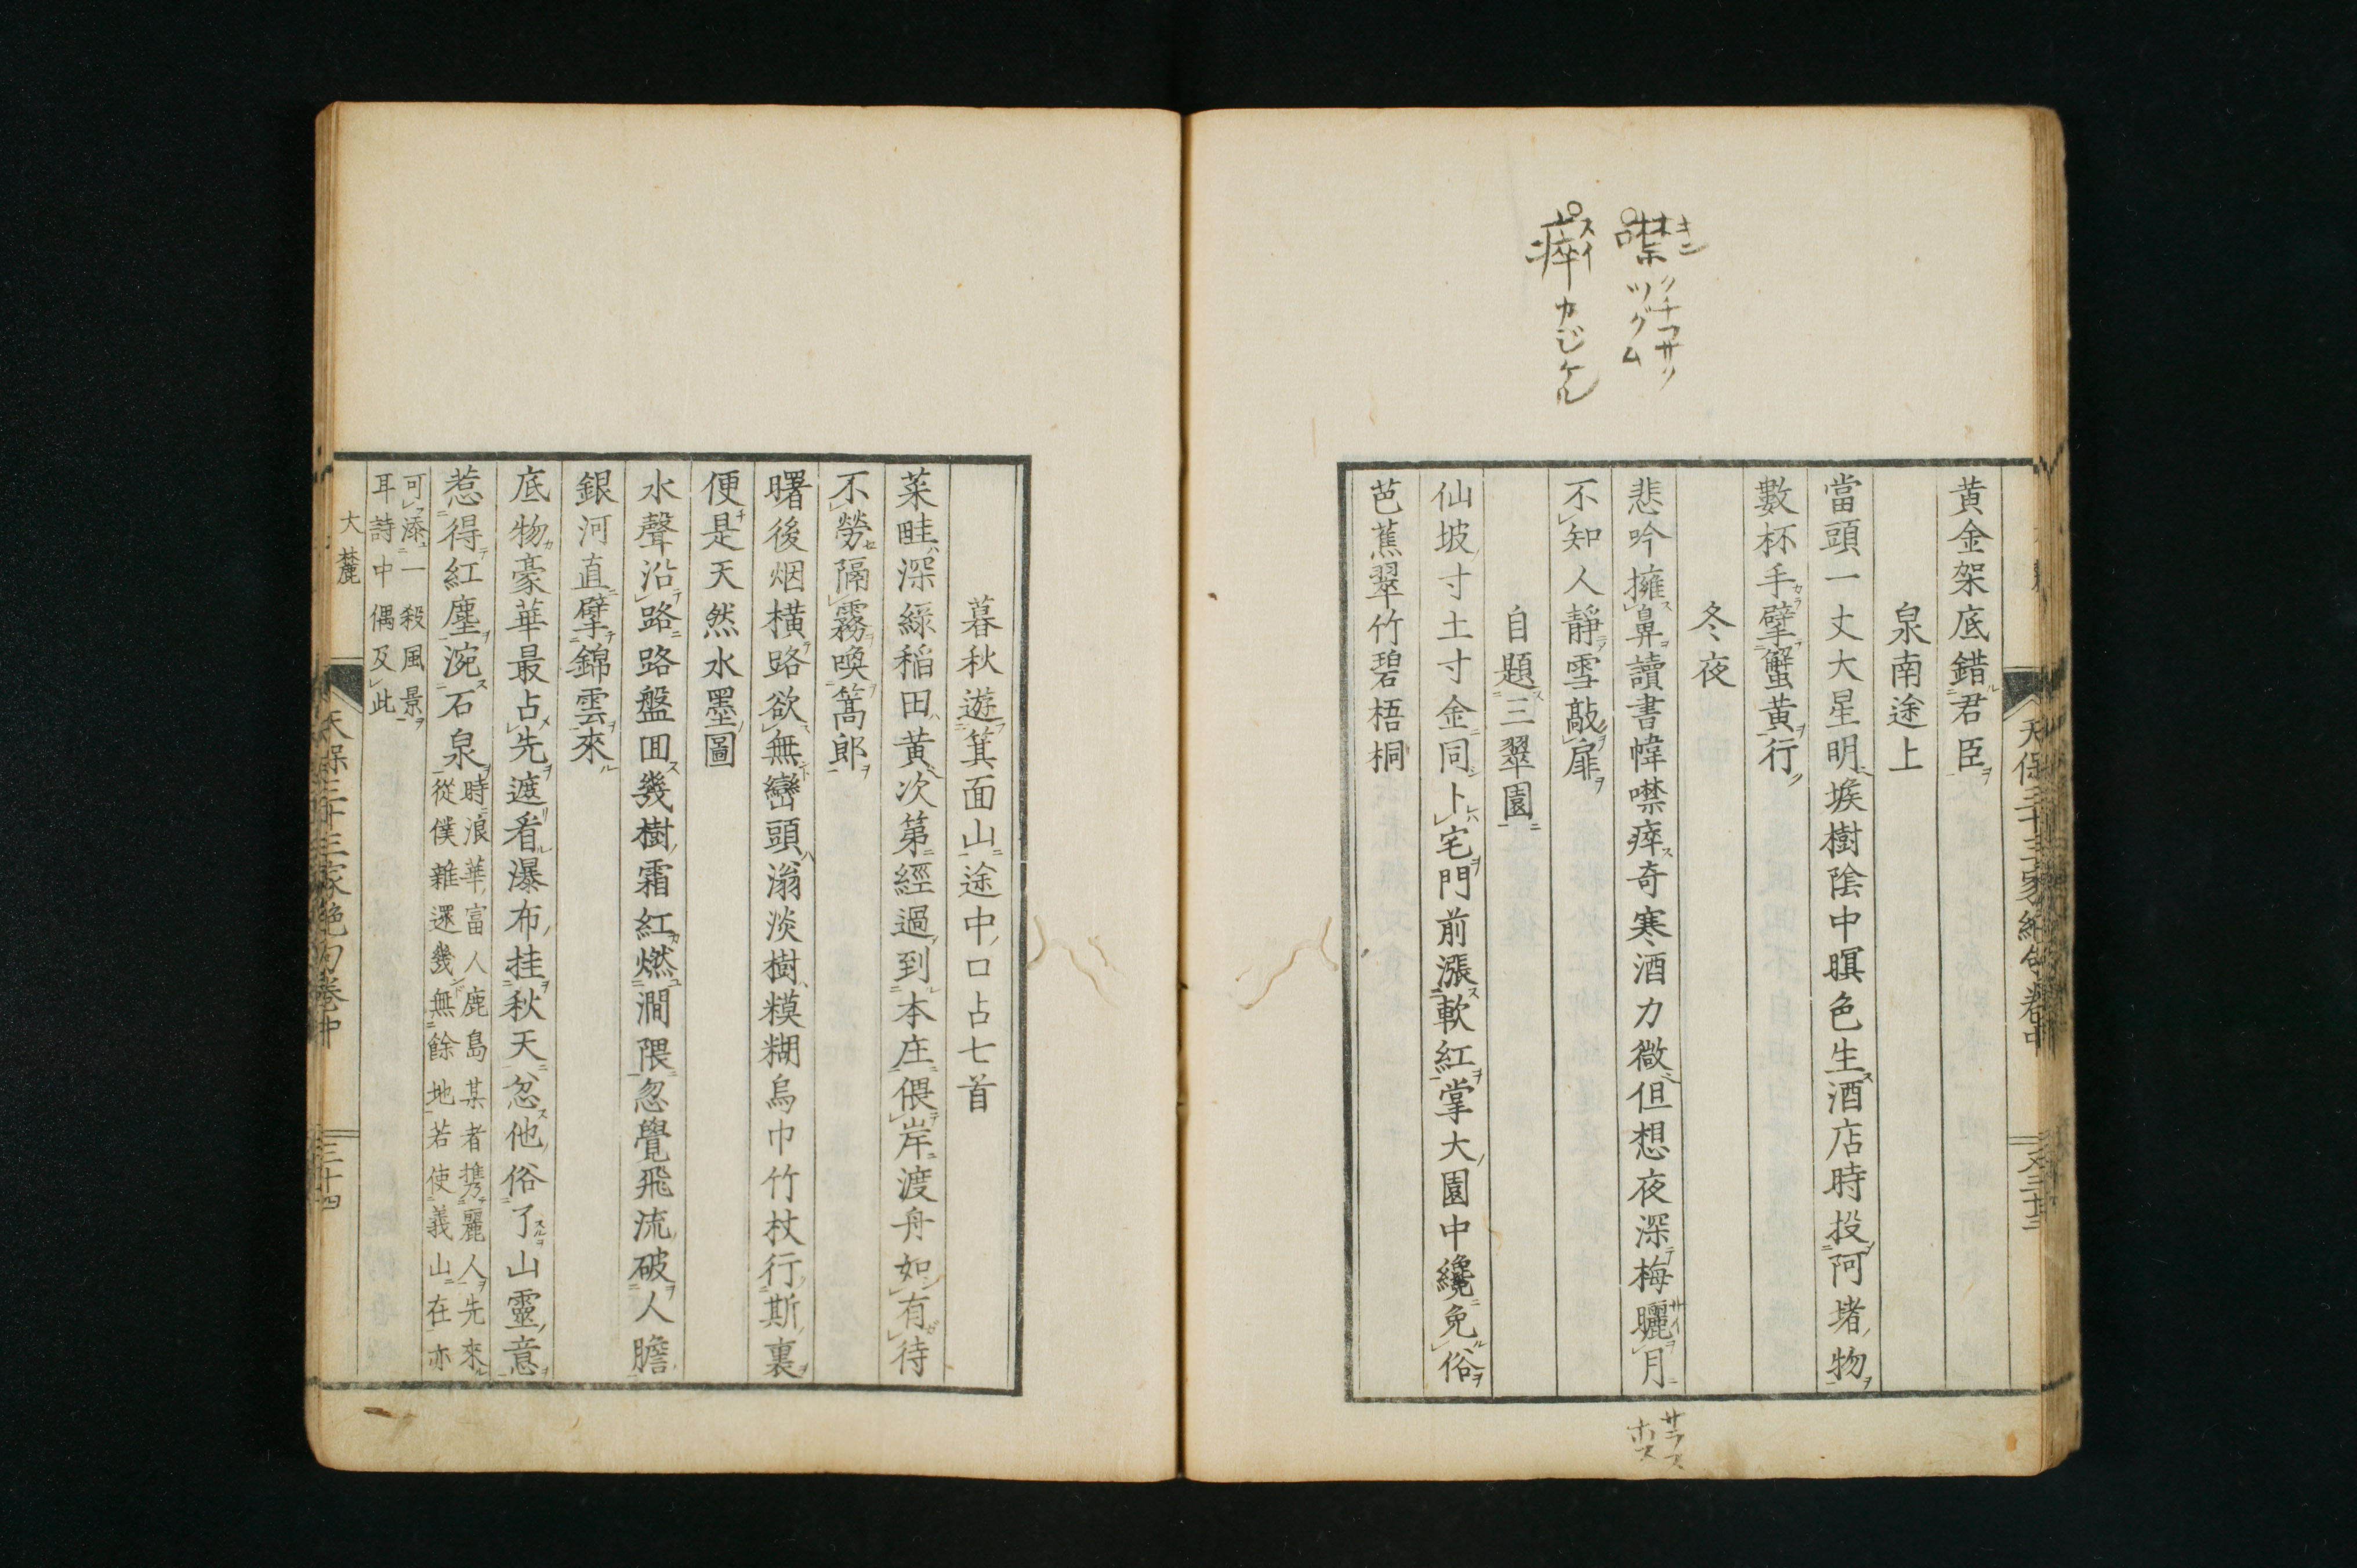 噤キンクチフサク
ツグム
瘁スイカジケル
黄金架底錯君臣
泉南途上
當頭一丈大星明堠樹陰中暝色生酒店時投阿堵物
數杯手擘蟹黄行
冬夜
悲吟擁鼻讀書幃噤瘁奇寒酒力微但想夜深梅曬月
不知人靜雪敲扉
自題三翠園
仙坡寸土寸金同卜宅門前漲軟紅掌大園中纔免俗
芭蕉翠竹碧梧桐
サラス
ホス
暮秋遊箕面山途中口占七首
菜畦深綠稻田黄次第經過到本庄偎岸渡舟如有待
不勞隔霧喚篙郎
曙後烟横路欲無巒頭滃淡樹糢糊烏巾竹杖行斯裏
便是天然水墨圖
水聲沿路路盤囬幾樹霜紅燃澗隈忽覺飛流破人膽
銀河直擘錦雲來
底物豪華最占先遮看瀑布挂秋天忽他俗了山靈意
惹得紅塵涴石泉
時浪華富人鹿島某者携麗人先來
從僕雜遝幾無餘地若使義山在亦
可添一殺風景
耳詩中偶及此
大麓
天保三十三家絶句卷中
三十四